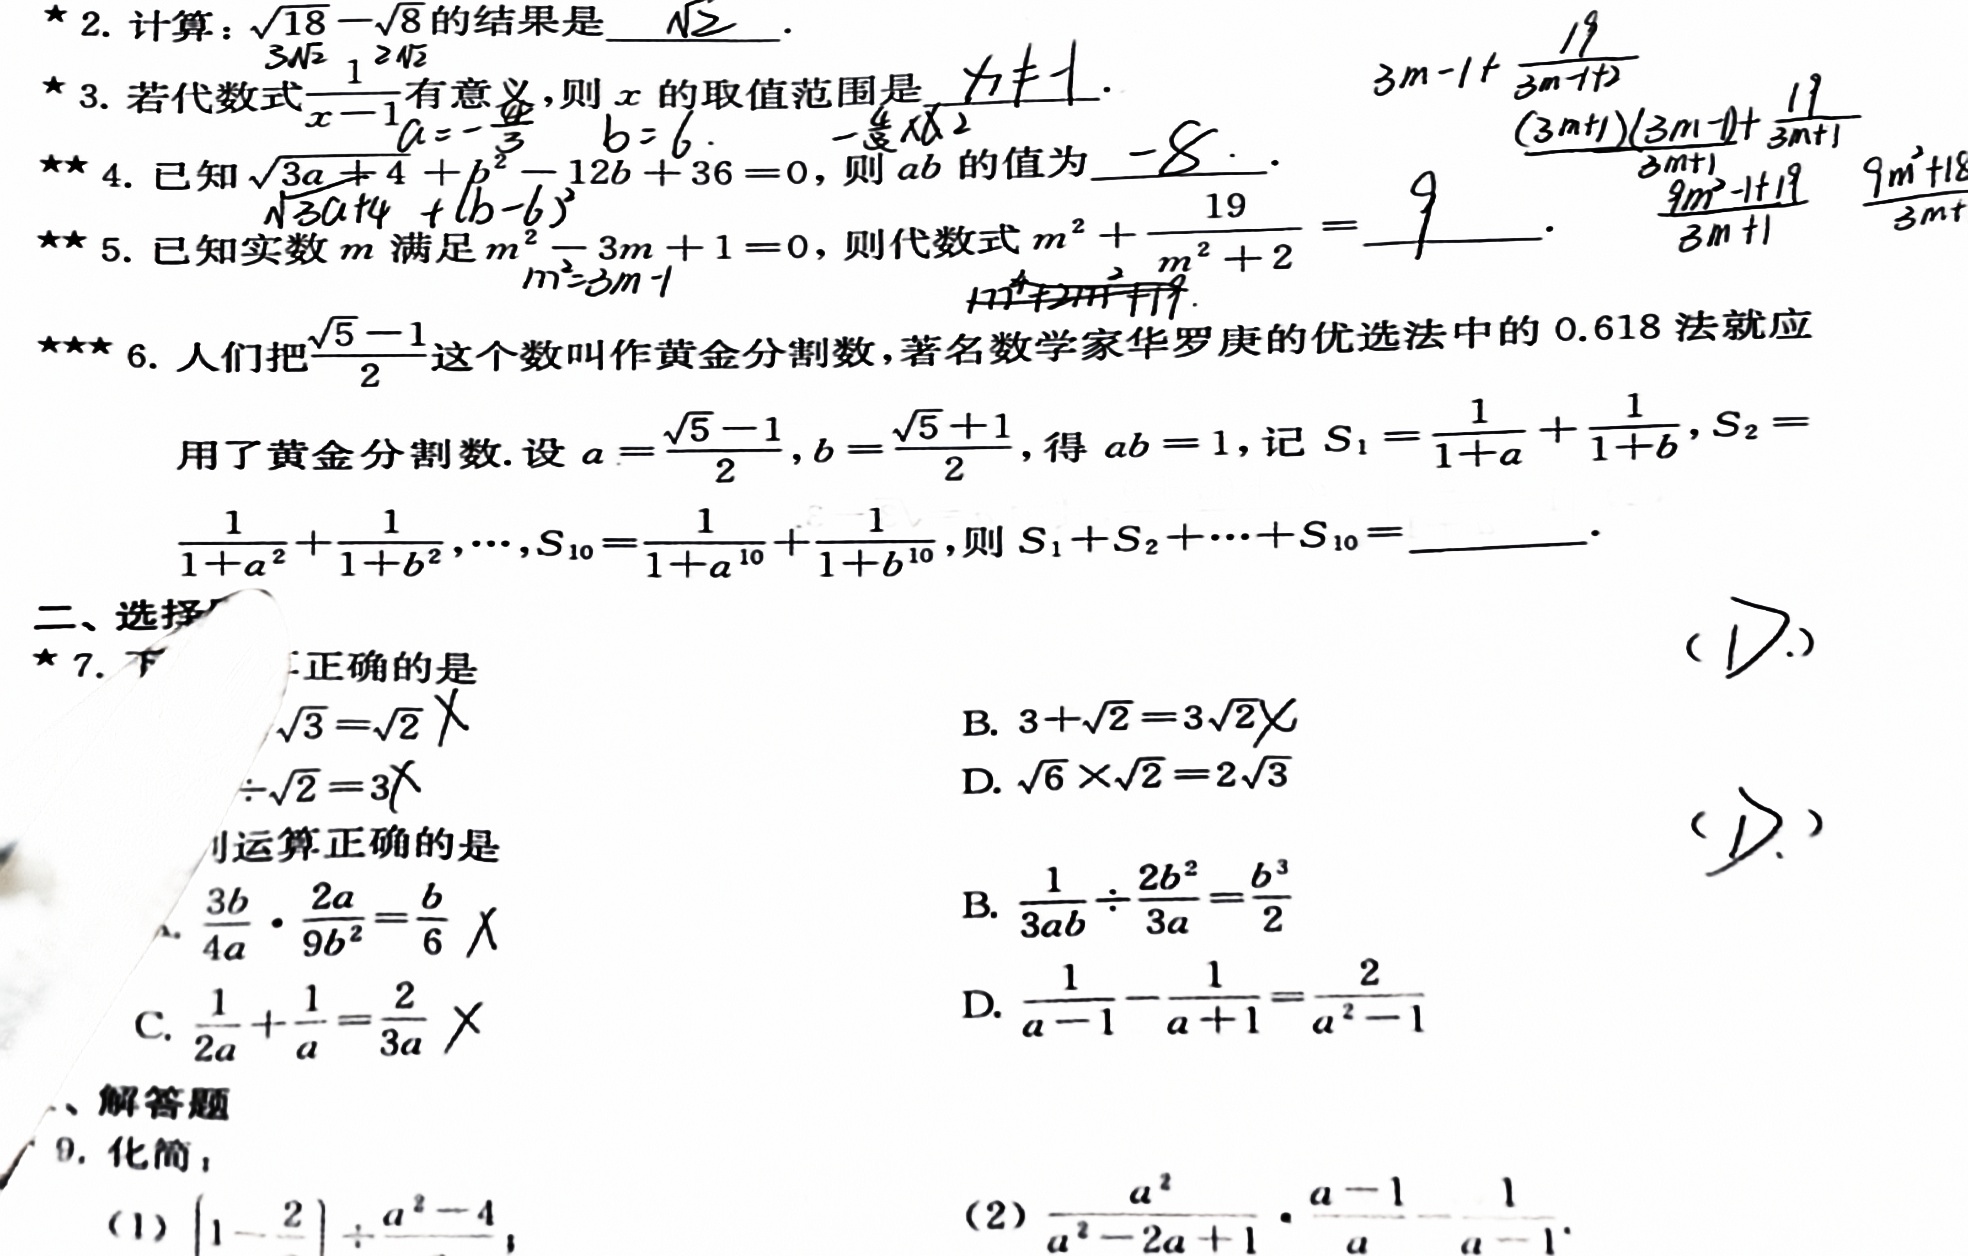 ★ 2. 计算：√18－√8的结果是 √2 .
3√2 2√2
★ 3. 若代数式1/(x－1)有意义,则 x 的取值范围是 ≠1.
a=-4/3 b=6. 
★★ 4. 已知√(3a＋4)＋b²－12b＋36＝0, 则 ab 的值为 -8 .
√3a+4 +(b-6)²
★★ 5. 已知实数 m 满足 m²－3m＋1＝0, 则代数式 m²＋19/(m²＋2)＝ 9 .
m²=3m-1
m⁴+2m²+19.
3m-1+ 19/(3m-1+2)
(3m+1)(3m-1)/(3m+1) + 19/(3m+1)
(9m²-1+19)/(3m+1) 9m²+18/3m+
★★★ 6. 人们把(√5－1)/2这个数叫作黄金分割数,著名数学家华罗庚的优选法中的 0.618 法就应
用了黄金分割数.设 a＝(√5－1)/2, b＝(√5＋1)/2, 得 ab＝1, 记 S₁＝1/(1＋a)＋1/(1＋b), S₂＝
1/(1＋a²)＋1/(1＋b²),⋯,S₁₀＝1/(1＋a¹⁰)＋1/(1＋b¹⁰),则 S₁＋S₂＋⋯＋S₁₀＝ .
二、选择
★ 7. 下 正确的是 ( D. )
√3＝√2 ×
B. 3＋√2＝3√2 ×
÷√2＝3 ×
D. √6×√2＝2√3
列运算正确的是 ( D. )
A. 3b/4a · 2a/9b²＝b/6 ×
B. 1/3ab÷2b²/3a＝b³/2
C. 1/2a＋1/a＝2/3a ×
D. 1/(a－1)－1/(a＋1)＝2/(a²－1)
、解答题
9. 化简：
(1) (1－2/ )÷(a²－4)/ ;
(2) a²/(a²－2a＋1) · (a－1)/a－1/(a－1).